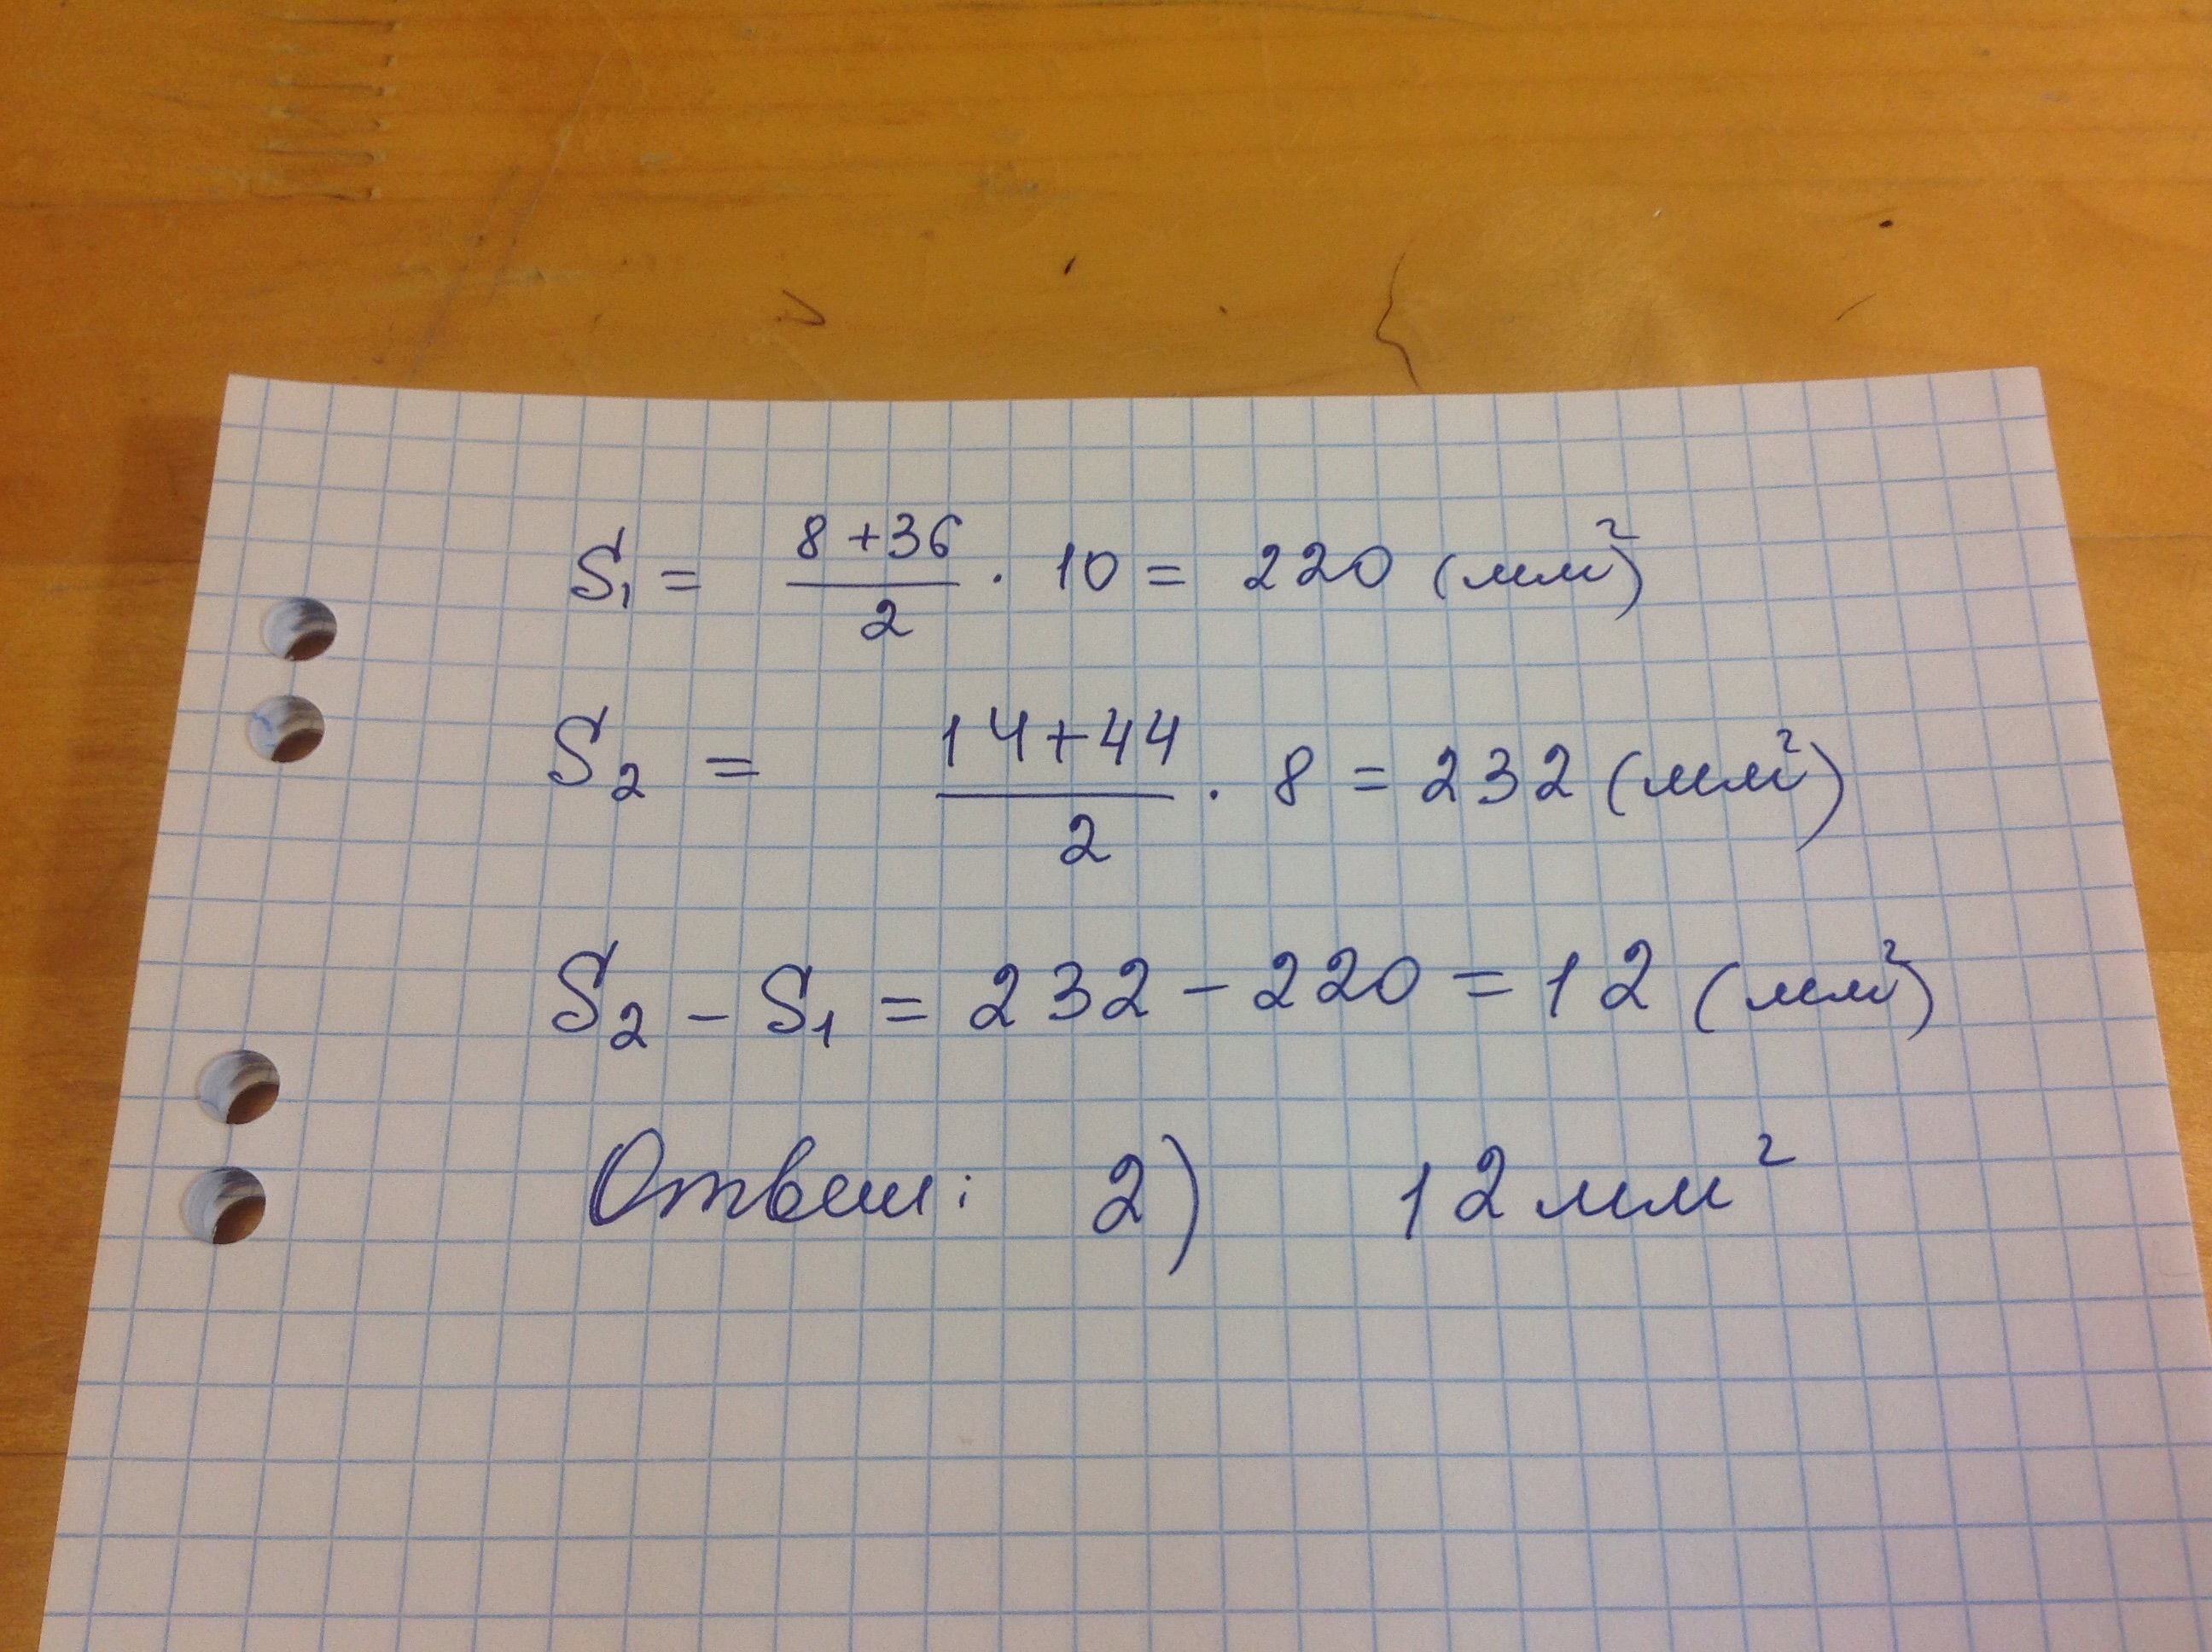 S₁ = (8+36)/2 · 10 = 220 (мм²)
S₂ = (14+44)/2 · 8 = 232 (мм²)
S₂ - S₁ = 232 - 220 = 12 (мм²)
Ответ: 2) 12 мм²